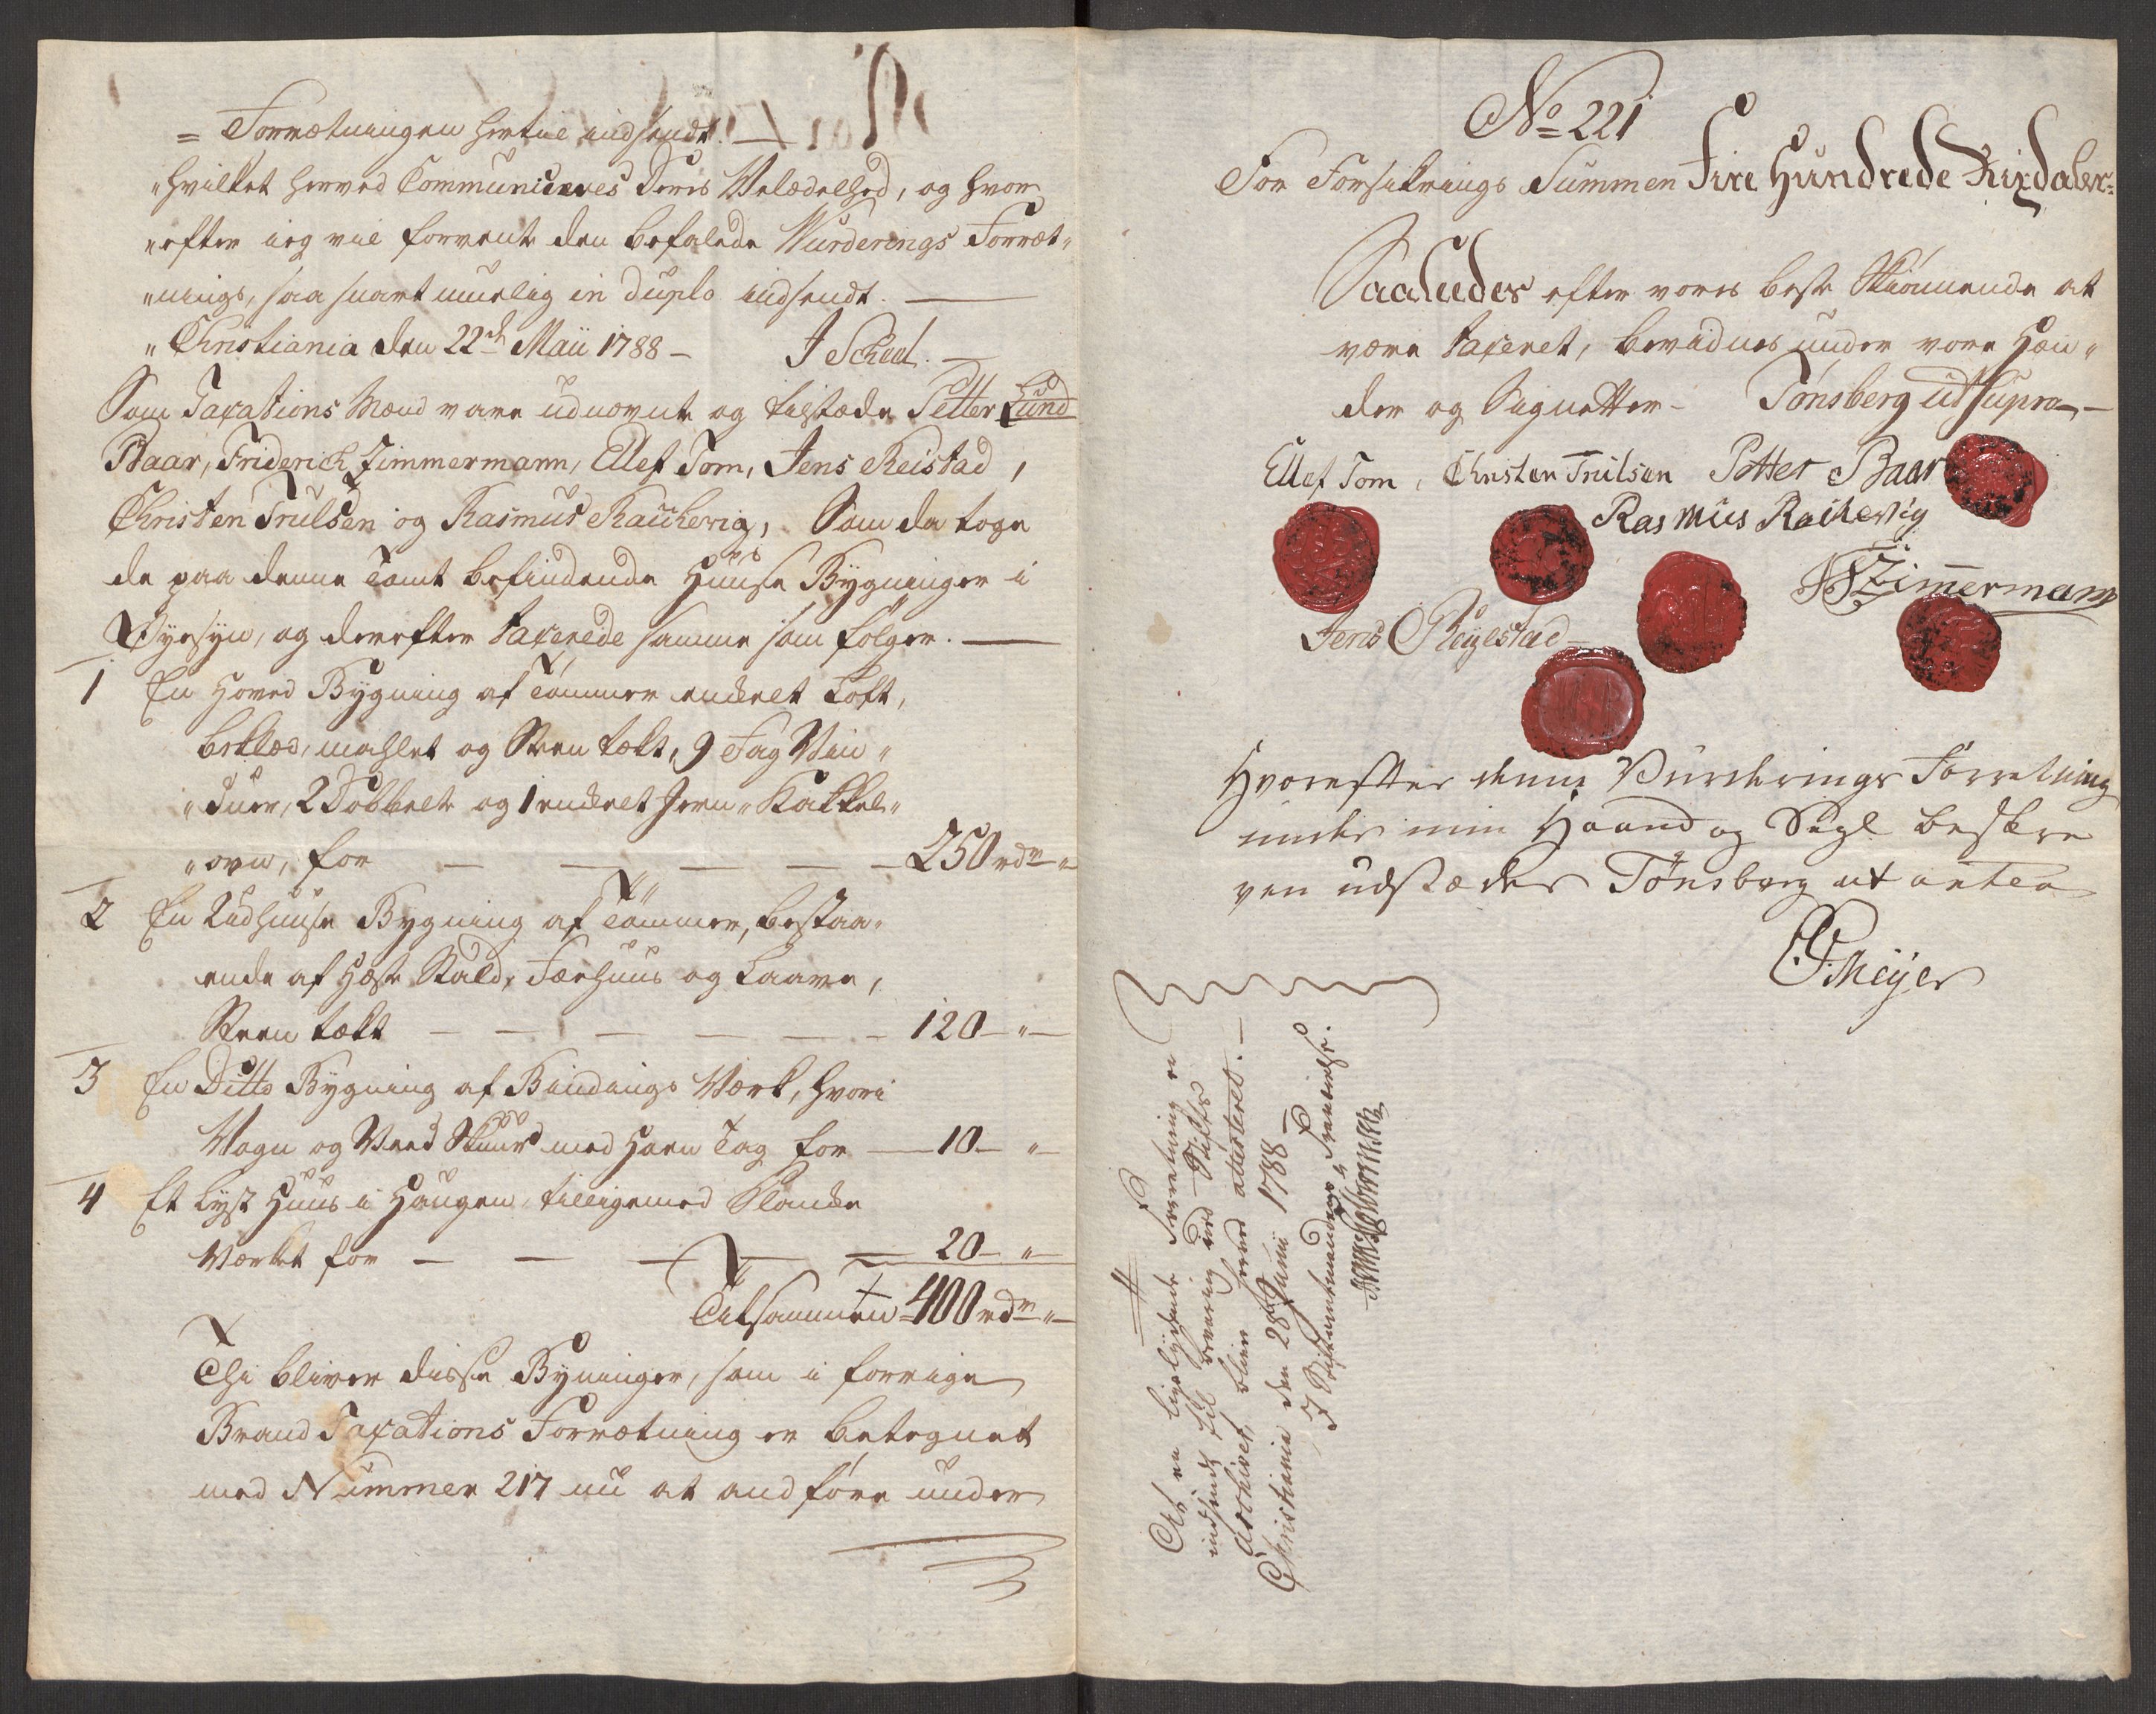 = Forretningen hertil indsendt. —
"hvilket herved Communiceres Deres Velædelhed, og hvor
"efter ieg vil forvente den befalede Vurderings Forret„
"nings, saa snart muelig in duplo indsendt. —
"Christiania den 22de Maii 1788 – J Scheel. —
Som Taxations Mænd vare udnævnte og tilstæde Petter Lund
Baar, Friderich Zimmermann, Ellef Tom, Jens Reistad,
Christen Trulsen og Rasmus Rachewig, Som da toge
de paa denne Tomt befindende Huuse Bygninger i
Øyesyn, og derefter taxerede samme som følger. —
1 En Hoved Bygning af Tømmer enkelt Loft,
beklæd, mahlet og Steen tækt, 9 Fag Vin„
"duer, 2 Dobbelte og 1 enkelt Jern„Kakkel„
"ovn, for — — — — 250 rdr „
2 En Udhuuse Bygning af Tømmer, bestaa„
ende af Heste Stald, Færhuus og Laave,
Steen tækt — — — — — 120 – „ –
3 En Ditto Bygning af Bindings Værk, hvori
Vogn og Veed Skuur med Horn Tag for — 10 – „ –
4 Et Lyst Huus i Haugen tilligemed Planke
Værket for — — — — 20 – „
Tilsammen = 400 rdr „ –
Thi bliver disse Byninger, som i forrige
Brand Taxations Forretning er betegnet
med Nummer 217 nu at andføre under
No 221
For Forsikrings Summen Fire Hundrede Rixdaler:
Saaledes efter vores beste Skiønnende at
være taxeret, bevidnes under vore Hæn„
der og Signetter – Tønsberg ut supra –
Ellef Tom, Christen Trulsen Petter Baar
Rasmus Rachewig
F Zimmermann
Jens Reijestad
Hvorefter denne Vurderings Forretning
under min Haand og Segl beskre
ven udstædes Tønsberg ut antea
Meijer
At en ligelydende Forretning er
indsendt til bevaring ved Stifts
Archivet, bliver herved attesteret. –
Christiania den 28de Junii 1788 –
I Stiftamtmandens Fraværelse.